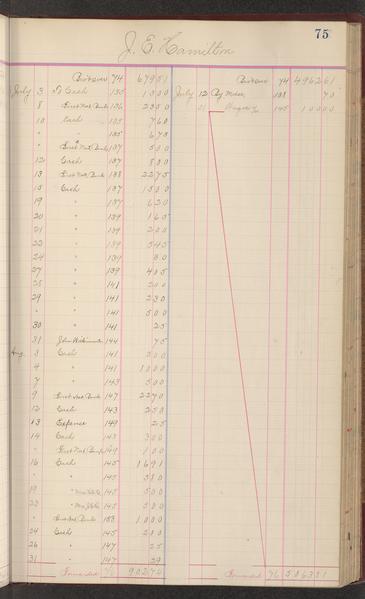 75
J. E. Hamilton
74 67951 74 496261
July 3 To Cash 135 1000 July 12 By Mdse 138 70
8 First Nat. Bank 136 2350 145 10000
10 Cash 135 760
" " 135 675
" First Nat. Bank 137 500
12 Cash 137 800
13 First Nat. Bank 138 2275
15 Cash 137 1500
19 " 137 620
20 " 139 165
21 " 139 200
22 " 139 545
24 " 139 80
27 " 139 405
28 " 141 200
29 " 141 230
" " 141 500
30 " 141 25
31 John 144 75
Aug. 3 Cash 141 200
4 " 141 1000
7 " 143 500
9 First Nat. Bank 147 2270
12 Cash 143 250
13 Expense 149 25
14 Cash 143 300
" First Nat. Bank 149 100
16 Cash 145 1691
" " 145 580
19 " 145 500
23 " 145 500
" First Nat. Bank 153 1000
24 Cash 145 200
26 " 147 25
31 " 147 29
Forwarded 76 90274 Forwarded 76 506331